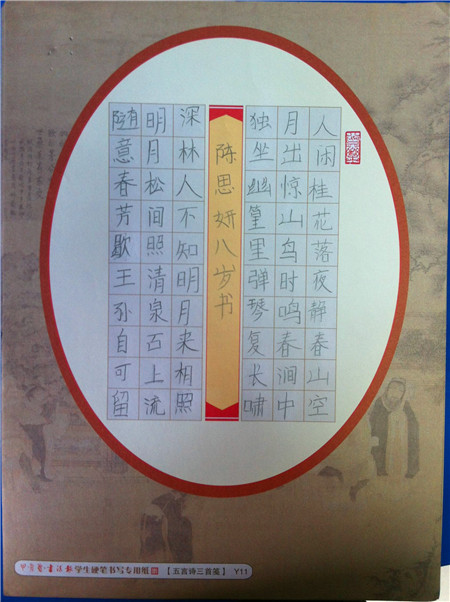 人闲桂花落夜静春山空
月出惊山鸟时鸣春涧中
独坐幽篁里弹琴复长啸
陈思妍八岁书
深林人不知明月来相照
明月松间照清泉石上流
随意春芳歇王孙自可留
书法报学生硬笔书写专用纸【五言诗三首笺】 Y11